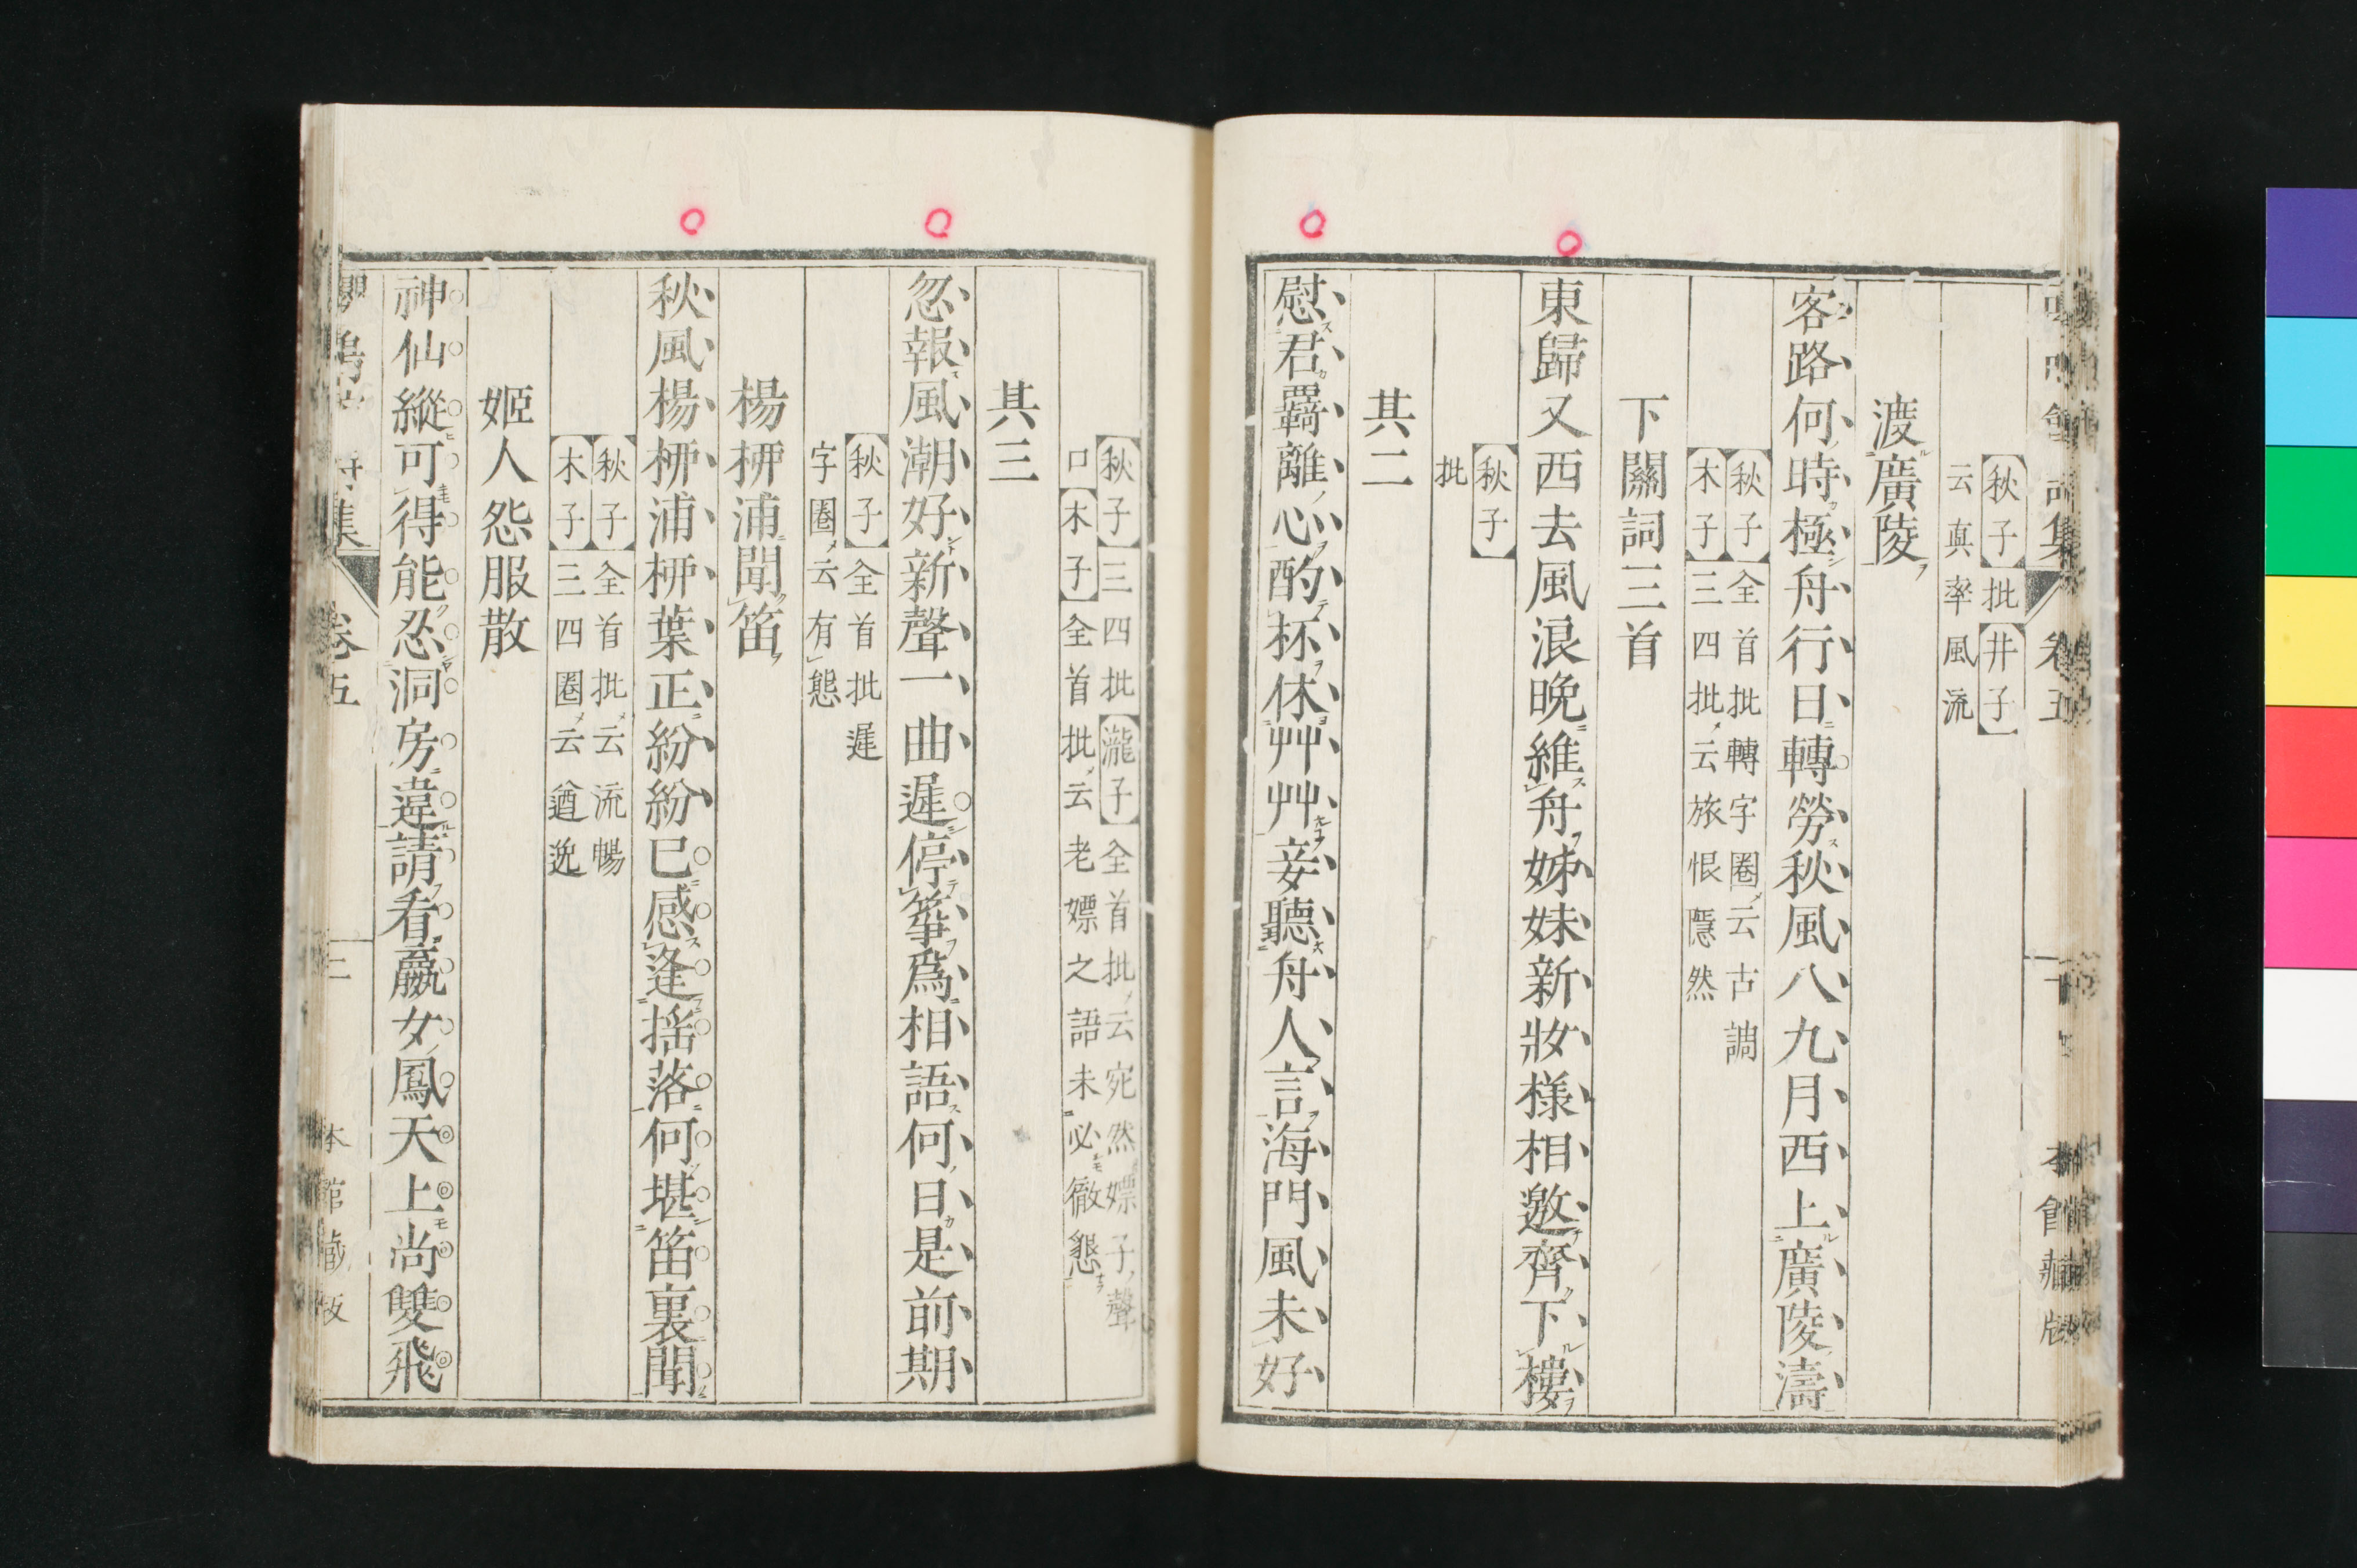 秋子批井子
云真率風流
渡廣陵
客路何時極舟行日轉勞秋風八九月西上廣陵濤
秋子全首批轉字圈云古調
木子三四批云旅恨隱然
下關詞三首
東歸又西去風浪晚維舟姊妹新妝樣相邀齊下樓
秋子
批
其二
慰君羇離心酌杯休艸艸妾聽舟人言海門風未好
秋子三四批瀧子全首批云宛然嫖子聲
口木子全首批云老嫖之語未必徹懇
其三
忽報風潮好新聲一曲遲停箏為相語何日是前期
秋子全首批遲
字圈云有態
楊栁浦聞笛
秋風楊栁浦栁葉正紛紛已感逢搖落何堪笛裏聞
秋子全首批云流暢
木子三四圈云遒逸
姬人怨服散
神仙縱可得能忍洞房違請看嬴女鳳天上尚雙飛
卷五